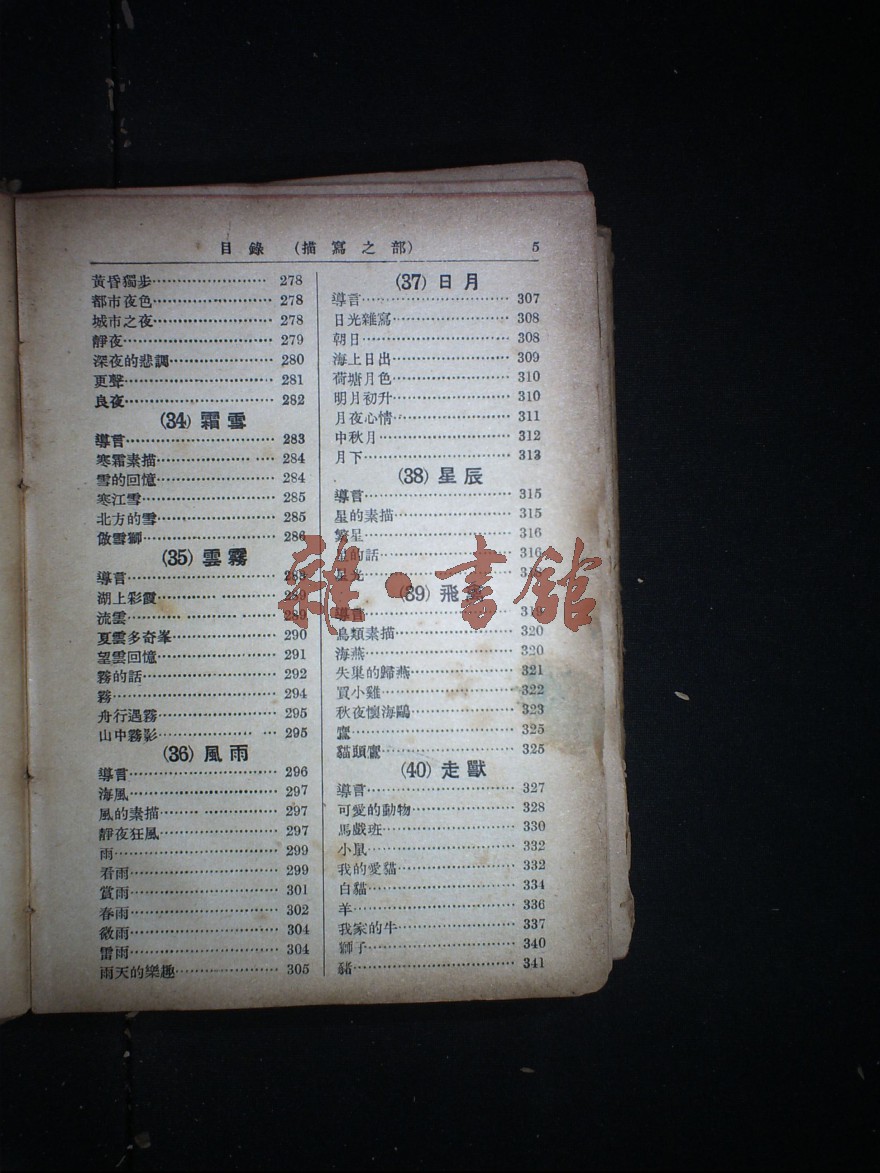 目錄 (描寫之部) 5
黃昏獨步 278
都市夜色 278
城市之夜 278
靜夜 279
深夜的悲調 280
更聲 281
良夜 282
(34) 霜雪
導言 283
寒霜素描 284
雪的回憶 284
寒江雪 285
北方的雪 285
做雪獅 286
(35) 雲霧
導言
湖上彩霞 289
流雲 289
夏雲多奇峯 290
望雲回憶 291
霧的話 292
霧 294
舟行遇霧 295
山中霧影 295
(36) 風雨
導言 296
海風 297
風的素描 297
靜夜狂風 297
雨 299
看雨 299
賞雨 301
春雨 302
微雨 304
雷雨 304
雨天的樂趣 305
(37) 日月
導言 307
日光雜寫 308
朝日 308
海上日出 309
荷塘月色 310
明月初升 310
月夜心情 311
中秋月 312
月下 313
(38) 星辰
導言 315
星的素描 315
繁星 316
星的話 316
星光 318
(39) 飛
導言 319
鳥類素描 320
海燕 320
失巢的歸燕 321
買小雞 322
秋夜懷海鷗 323
鷹 325
貓頭鷹 325
(40) 走獸
導言 327
可愛的動物 328
馬戲班 330
小鼠 332
我的愛貓 332
白貓 334
羊 336
我家的牛 337
獅子 340
豬 341
雜·書館